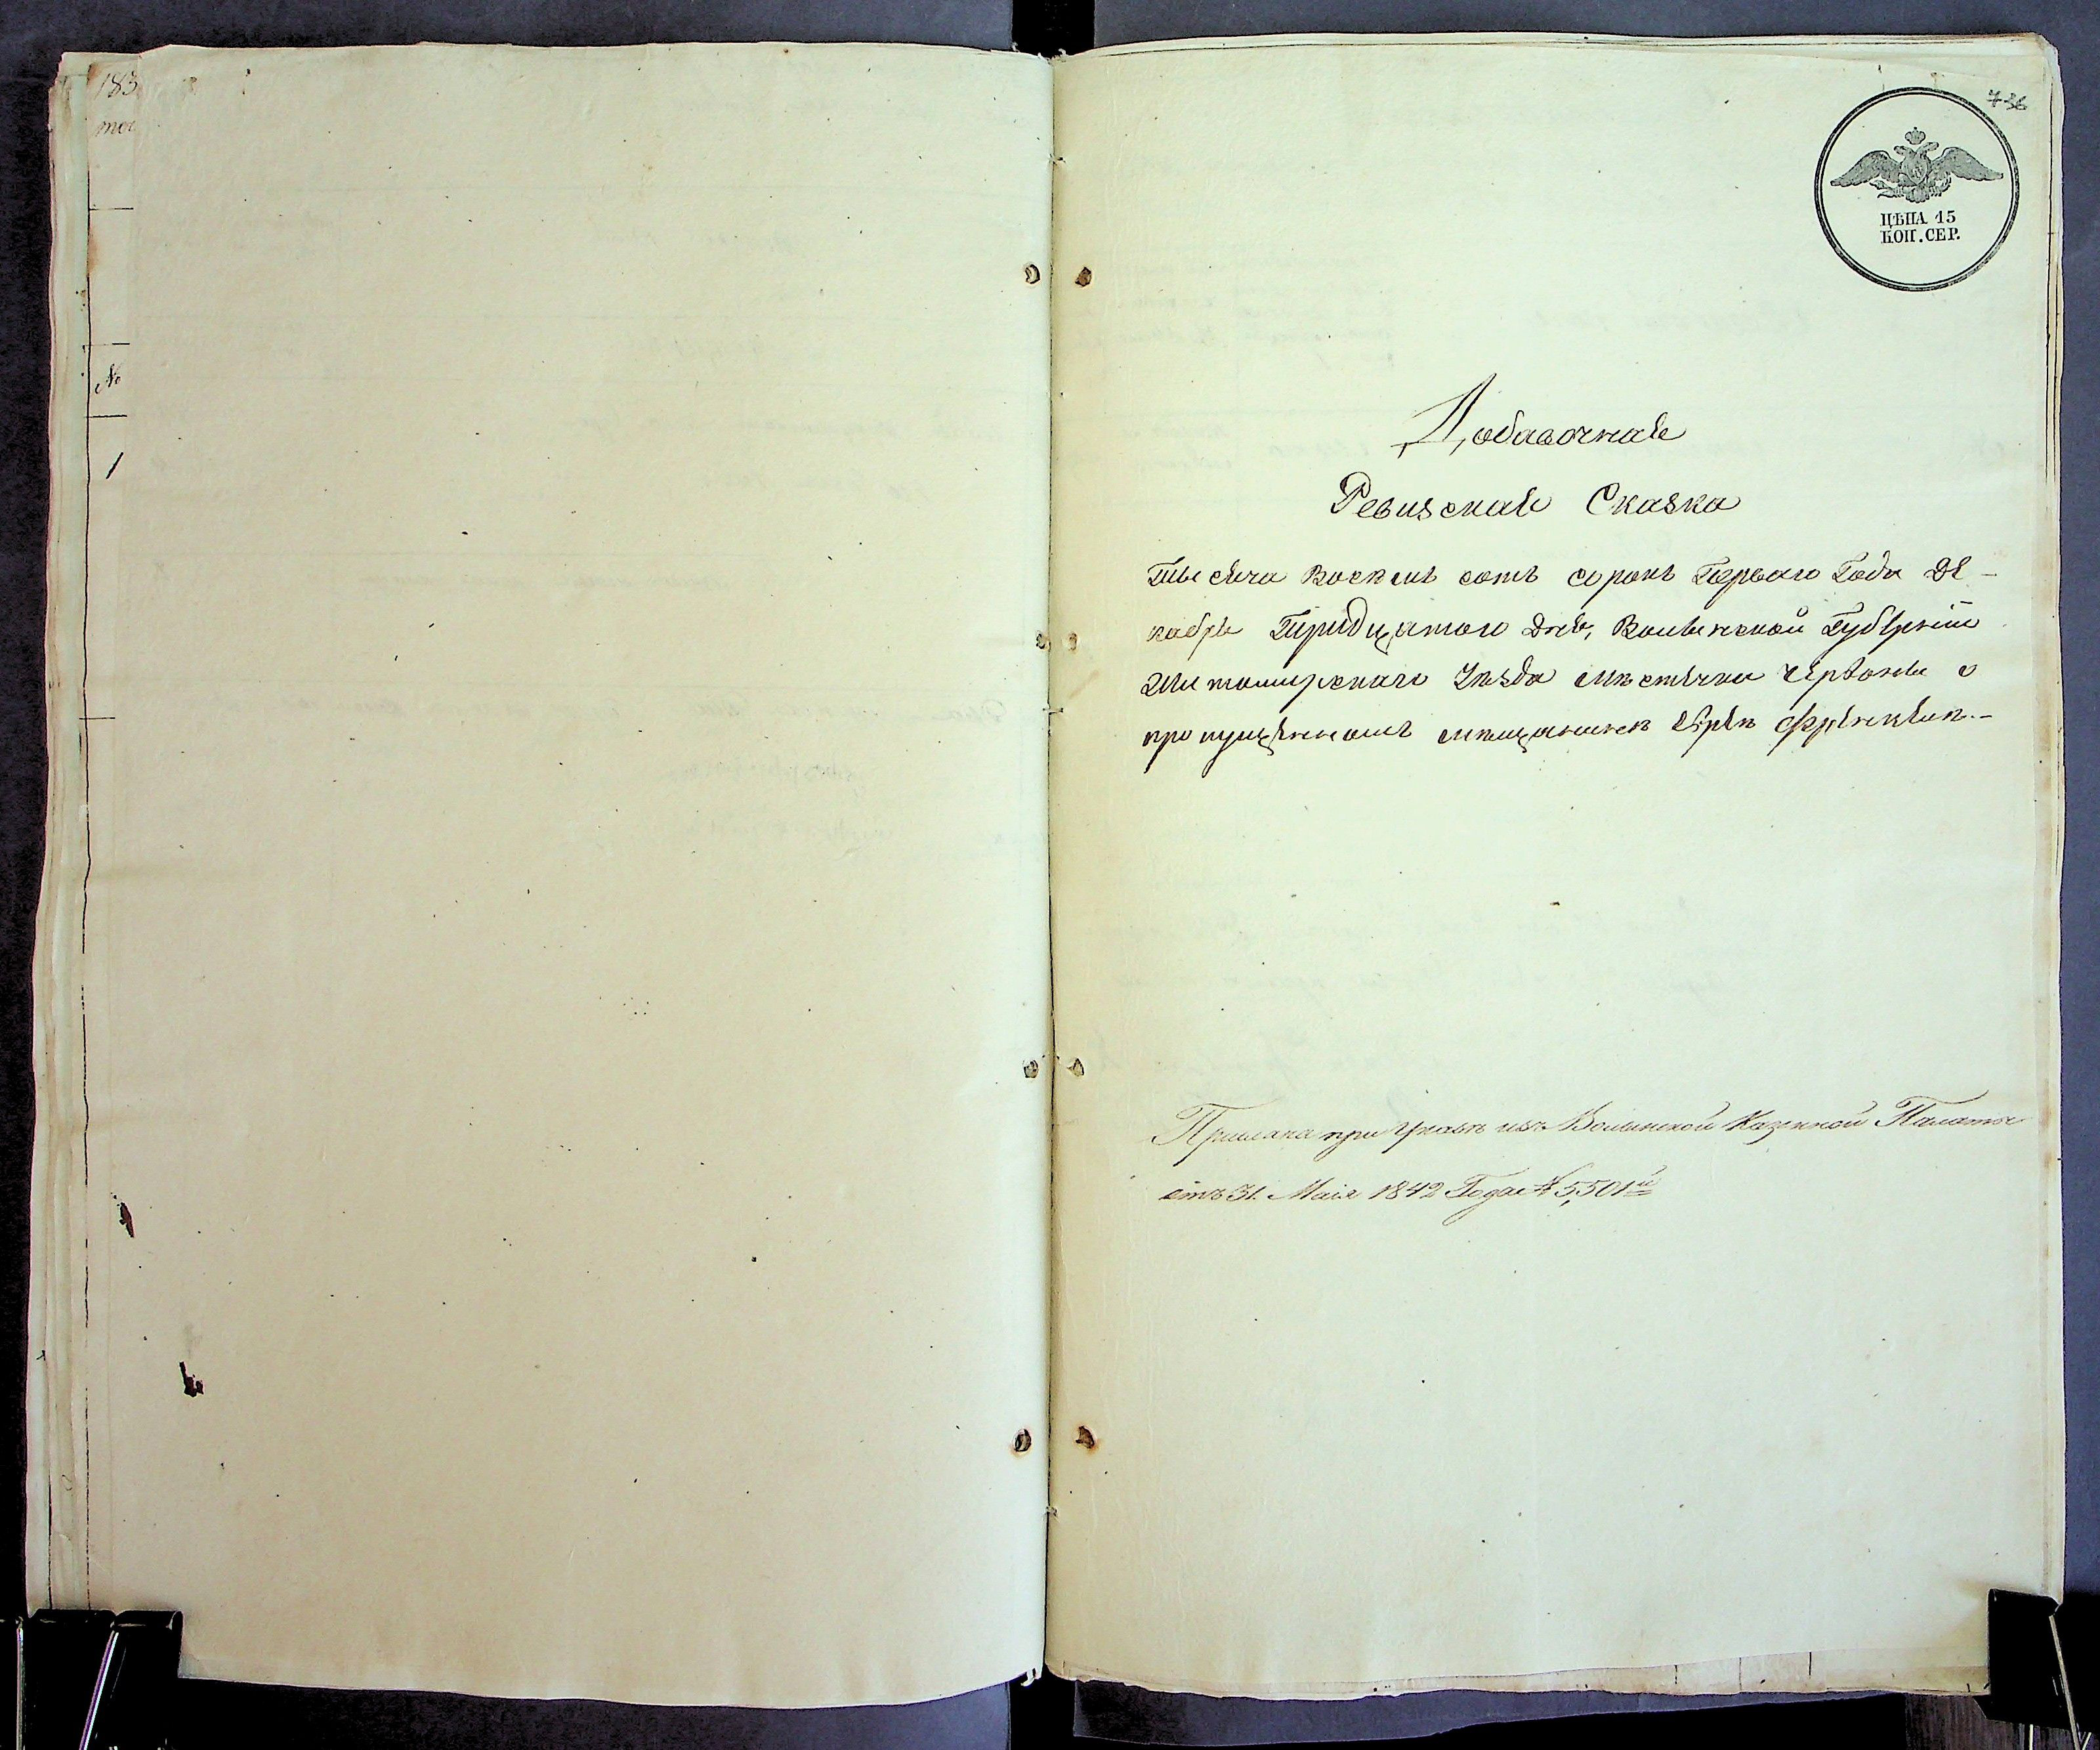 183
мос
№
1
736
ЦѢНА 15
КОП. СЕР.
Добавочная
Ревизская Сказка
Тысяча восемь сотъ сорокъ Перваго Года Де-
кабря Тридцатого дня, Волынской Губерніи
Житомирскаго Уѣзда мѣстечка Чер о
пропущенномъ мѣщанинѣ
Прислана при Указѣ изъ Волынской Казенной Палаты
отъ 31. Маія 1842 Года № 5,501<sup>й</sup>